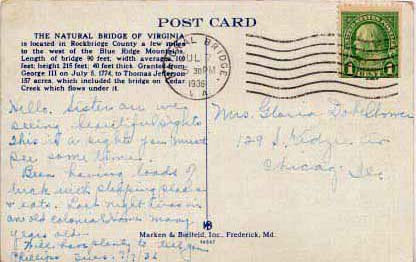 POST CARD
THE NATURAL BRIDGE OF VIRGINIA
is located in Rockbridge County a few miles
to the west of the Blue Ridge Mountains.
Length of bridge 90 feet; width averages 100
feet; height 215 feet; 40 feet thick. Granted from
George III on July 5, 1774, to Thomas Jefferson
157 acres, which included the bridge on Cedar
Creek which flows under it.
NATURAL BRIDGE,
JUL 7
5 30 PM
1936
VA.
1 CENT 1
Hello. Sister are we
seeing beautiful sights
This is a sight you must
see some time.
Been having loads of
luck with stopping places
& eats. Last night was in
an old colonial home many
years old
Will have plenty to tell you
Phillips Tues. 7/7/36
Mrs. Gloria
129 S. Kedzie
Chicago Ill
Marken & Bielfeld, Inc. Frederick, Md.